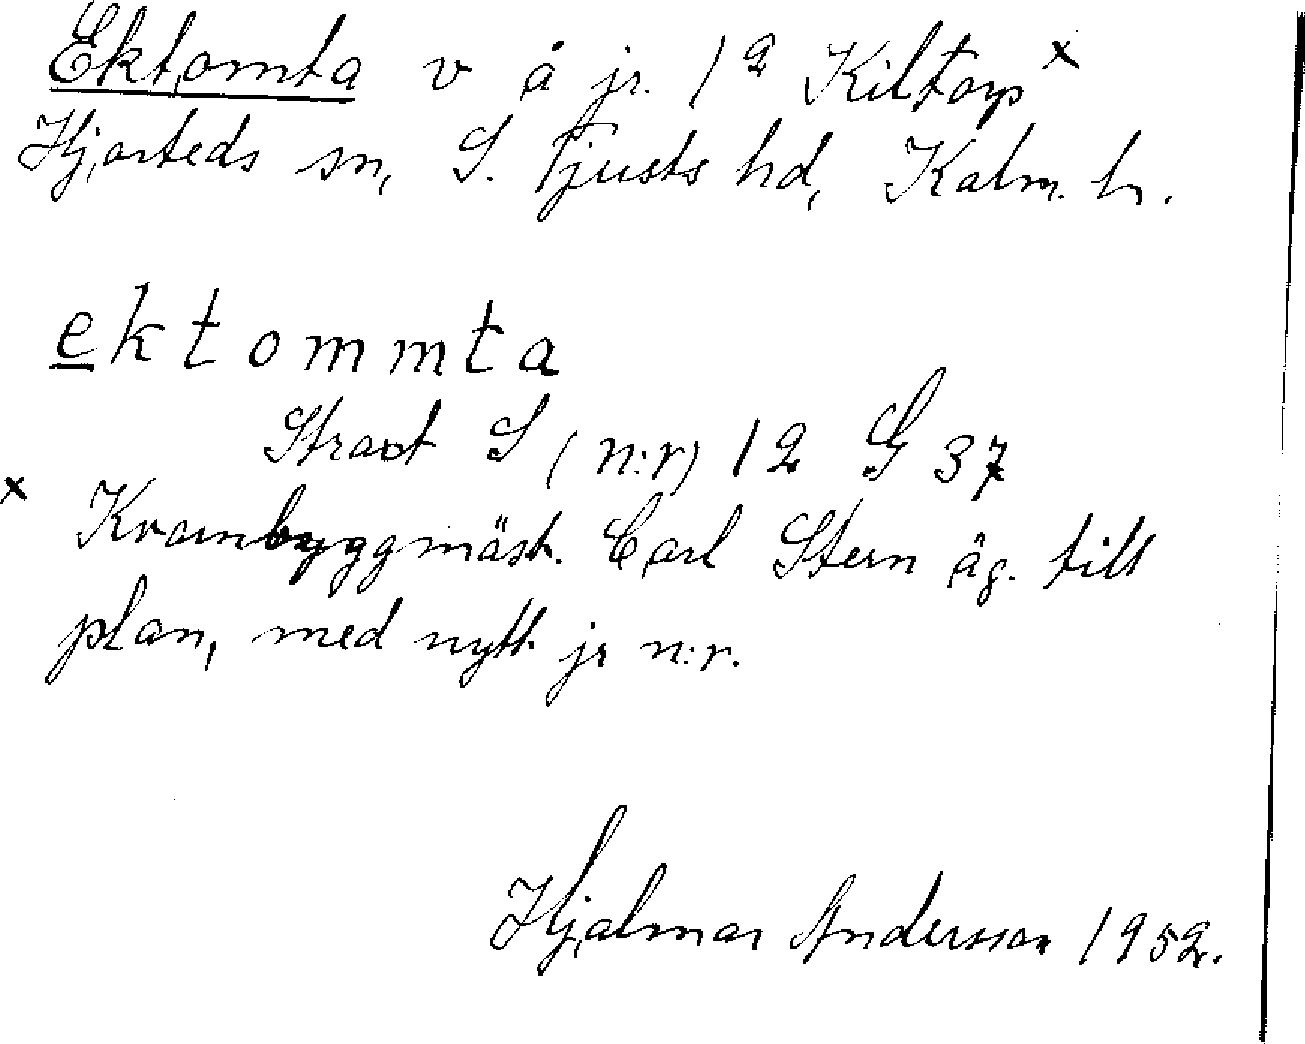 Ektomta v å jr. 1² Kiltorp x
Hjorteds sn, S. Tjusts hd, Kalm. l.
ektommta
Straxt S (n:r) 12 G 37
x Kvarnbyggmäst. Carl Stern äg. till
plan, med nytt jr n:r.
Hjalmar Andersson 1952.